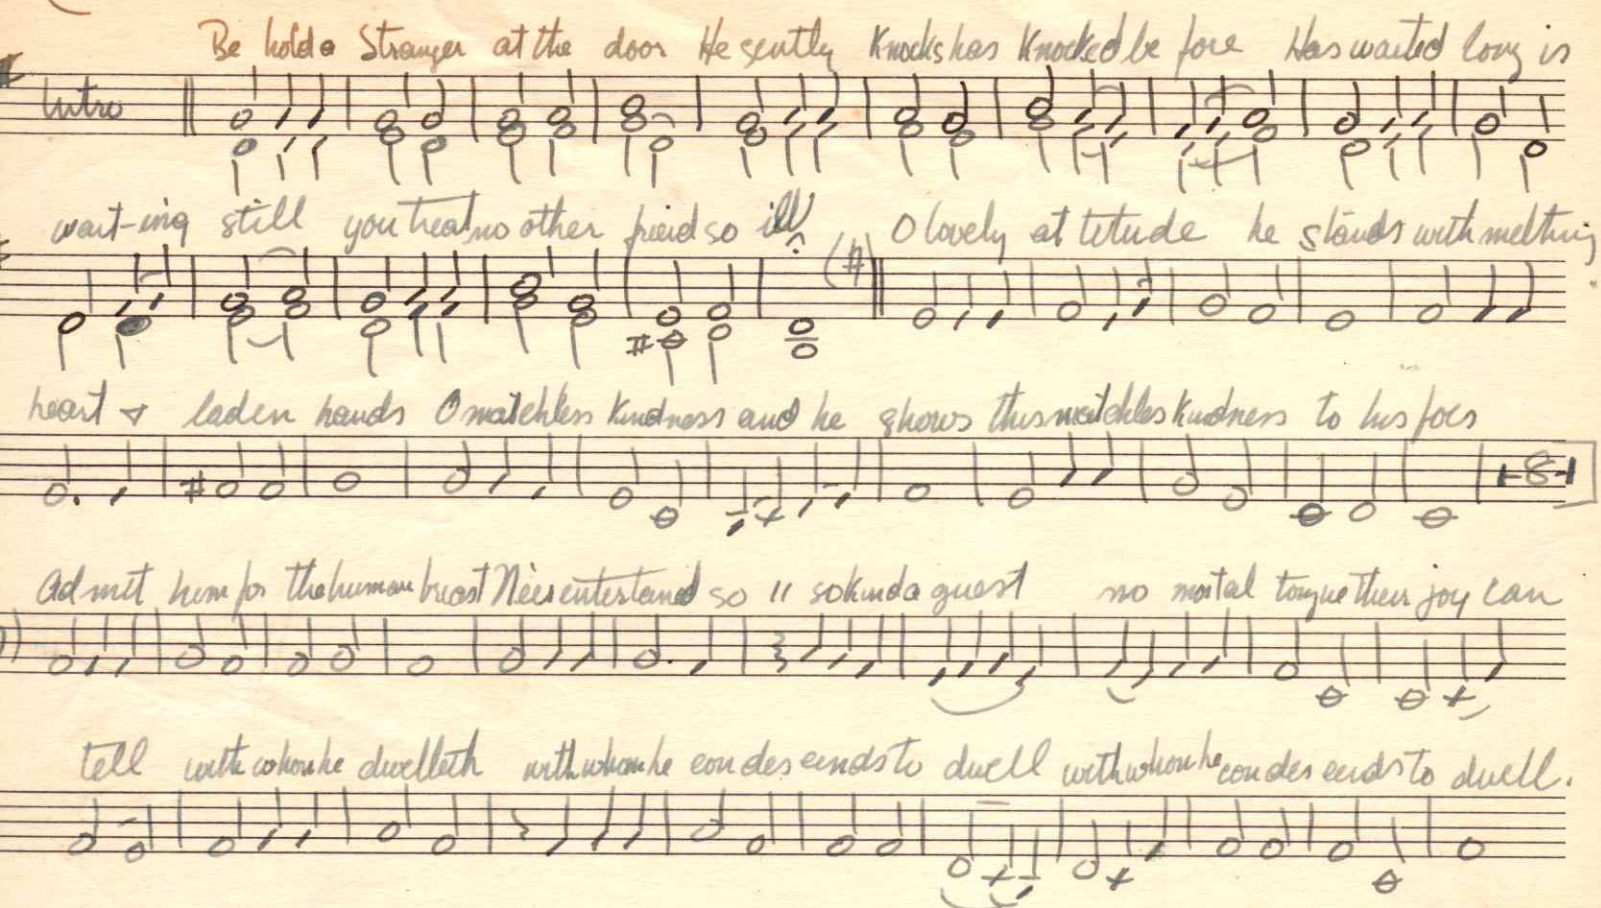 Be hold a Stranger at the door He gently Knocks has Knocked be fore Has waited long is
Intro
wait-ing still you treat no other friend so ill O lovely at titude he stands with melting
heart + laden hands O matchless Kindness and he shows this matchless Kindness to his foes
8
Admit him for the human breast Ne'er entertained so " so kind a guest no mortal tongue their joy can
tell with whom he dwelleth with whom he con des cends to dwell with whom he con des cends to dwell.